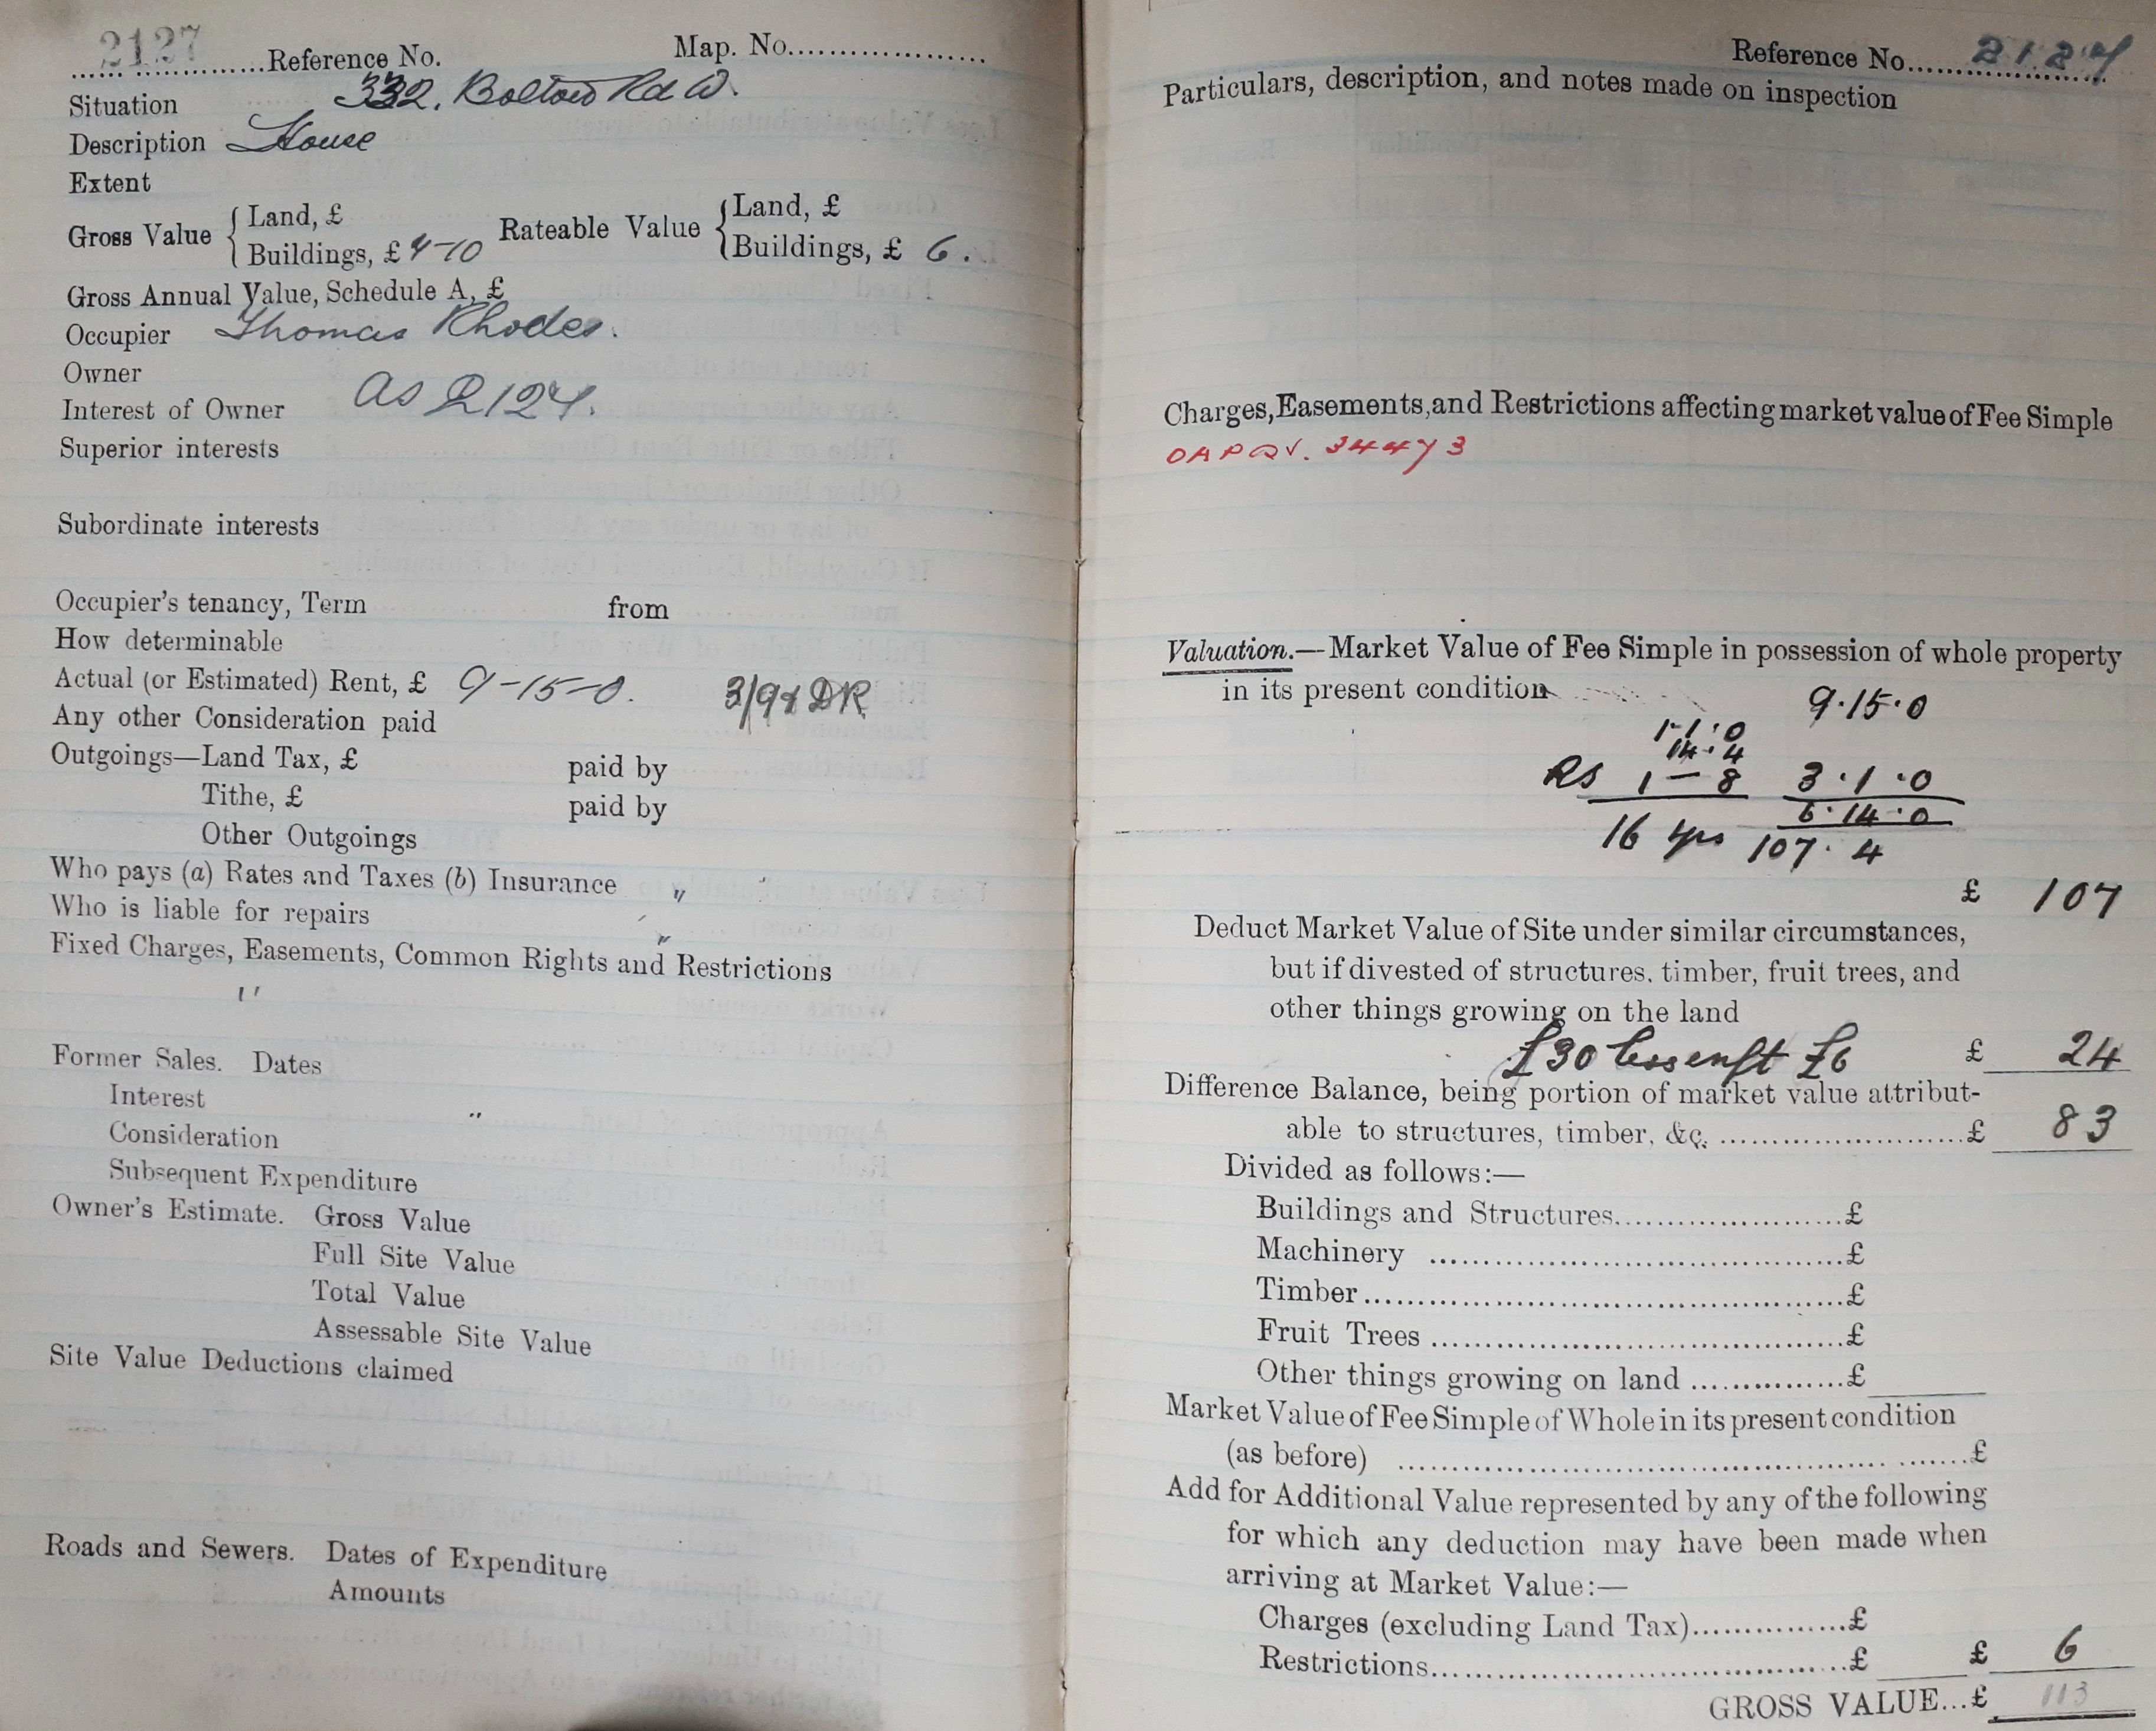 2127
Reference No. Map. No.
Situation 332, Bolton Rd W.
Description House
Extent
Gross Value { Land, £ Rateable Value { Land, £
Buildings, £ 7-10 Buildings, £ 6.
Gross Annual Value, Schedule A, £
Occupier Thomas Rhodes.
Owner
Interest of Owner as 2124.
Superior interests
Subordinate interests
Occupier's tenancy, Term from
How determinable
Actual (or Estimated) Rent, £ 9-15-0. 3/9d DR
Any other Consideration paid
Outgoings—Land Tax, £ paid by
Tithe, £ paid by
Other Outgoings
Who pays (a) Rates and Taxes (b) Insurance "
Who is liable for repairs
Fixed Charges, Easements, Common Rights and Restrictions
"
Former Sales. Dates
Interest "
Consideration
Subsequent Expenditure
Owner's Estimate. Gross Value
Full Site Value
Total Value
Assessable Site Value
Site Value Deductions claimed
Roads and Sewers. Dates of Expenditure
Amounts
Reference No. 2127
Particulars, description, and notes made on inspection
Charges, Easements, and Restrictions affecting market value of Fee Simple
34473
Valuation.—Market Value of Fee Simple in possession of whole property
in its present condition
9.15.0
1.1.0
14.4
Rs 1 — 8 3.1.0
6.14.0
16 yrs 107.4
£ 107
Deduct Market Value of Site under similar circumstances,
but if divested of structures, timber, fruit trees, and
other things growing on the land
£30 less enft £6 £ 24
Difference Balance, being portion of market value attribut-
able to structures, timber, &c. £ 83
Divided as follows:—
Buildings and Structures £
Machinery £
Timber £
Fruit Trees £
Other things growing on land £
Market Value of Fee Simple of Whole in its present condition
(as before) £
Add for Additional Value represented by any of the following
for which any deduction may have been made when
arriving at Market Value:—
Charges (excluding Land Tax) £
Restrictions £ £ 6
GROSS VALUE...£ 113